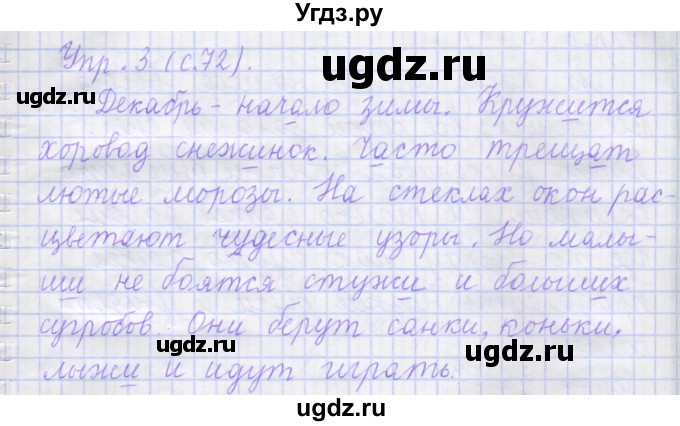 Угдз.ру
Упр. 3 (с.72).
ugdz.ru
ugdz.ru
Декабрь - начало зимы. Кружится
хоровод снежинок. Часто трещат
лютые морозы. На стеклах окон рас-
цветают чудесные узоры. Но малы-
ши не боятся стужи и больших
сугробов. Они берут санки, коньки,
ugdz.ru
ugdz.ru
лыжи и идут играть.
ugdz.ru